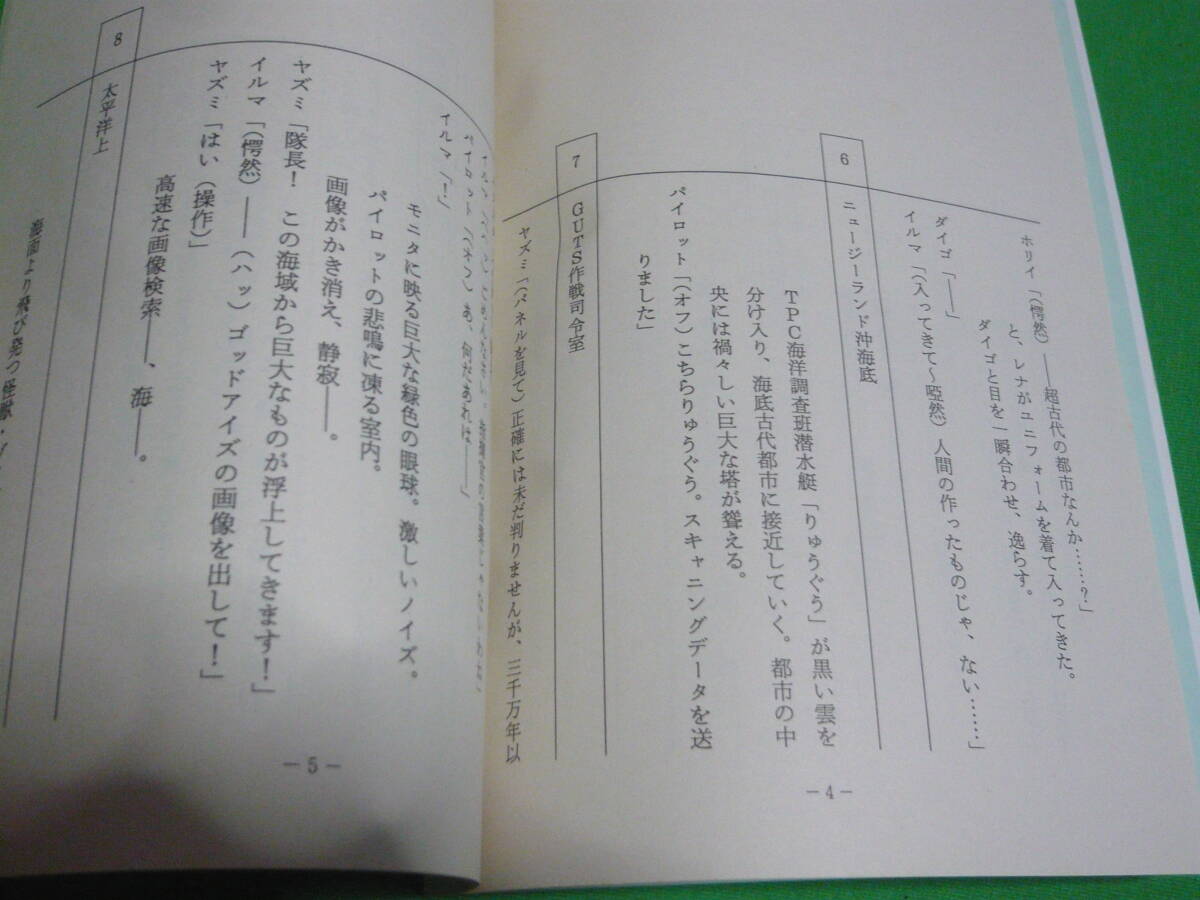 ホリイ「(愕然)――超古代の都市なんか……?」
と、レナがユニフォームを着て入ってきた。
ダイゴと目を一瞬合わせ、逸らす。
ダイゴ「――」
イルマ「(入ってきて～啞然)人間の作ったものじゃ、ない……」
6 ニュージーランド沖海底
TPC海洋調査班潜水艇「りゅうぐう」が黒い雲を
分け入り、海底古代都市に接近していく。都市の中
央には禍々しい巨大な塔が聳える。
パイロット「(オフ)こちらりゅうぐう。スキャニングデータを送
りました」
7 GUTS作戦司令室
ヤズミ「(パネルを見て)正確には未だ判りませんが、三千万年以
－4－
パイロット「(オフ)あ、何だあれは――」
イルマ「！」
モニタに映る巨大な緑色の眼球。激しいノイズ。
パイロットの悲鳴に凍る室内。
画像がかき消え、静寂――。
ヤズミ「隊長！　この海域から巨大なものが浮上してきます！」
イルマ「(愕然)――(ハッ)ゴッドアイズの画像を出して！」
ヤズミ「はい(操作)」
高速な画像検索――、海――。
8 太平洋上
海面より飛び発つ怪獣・
－5－